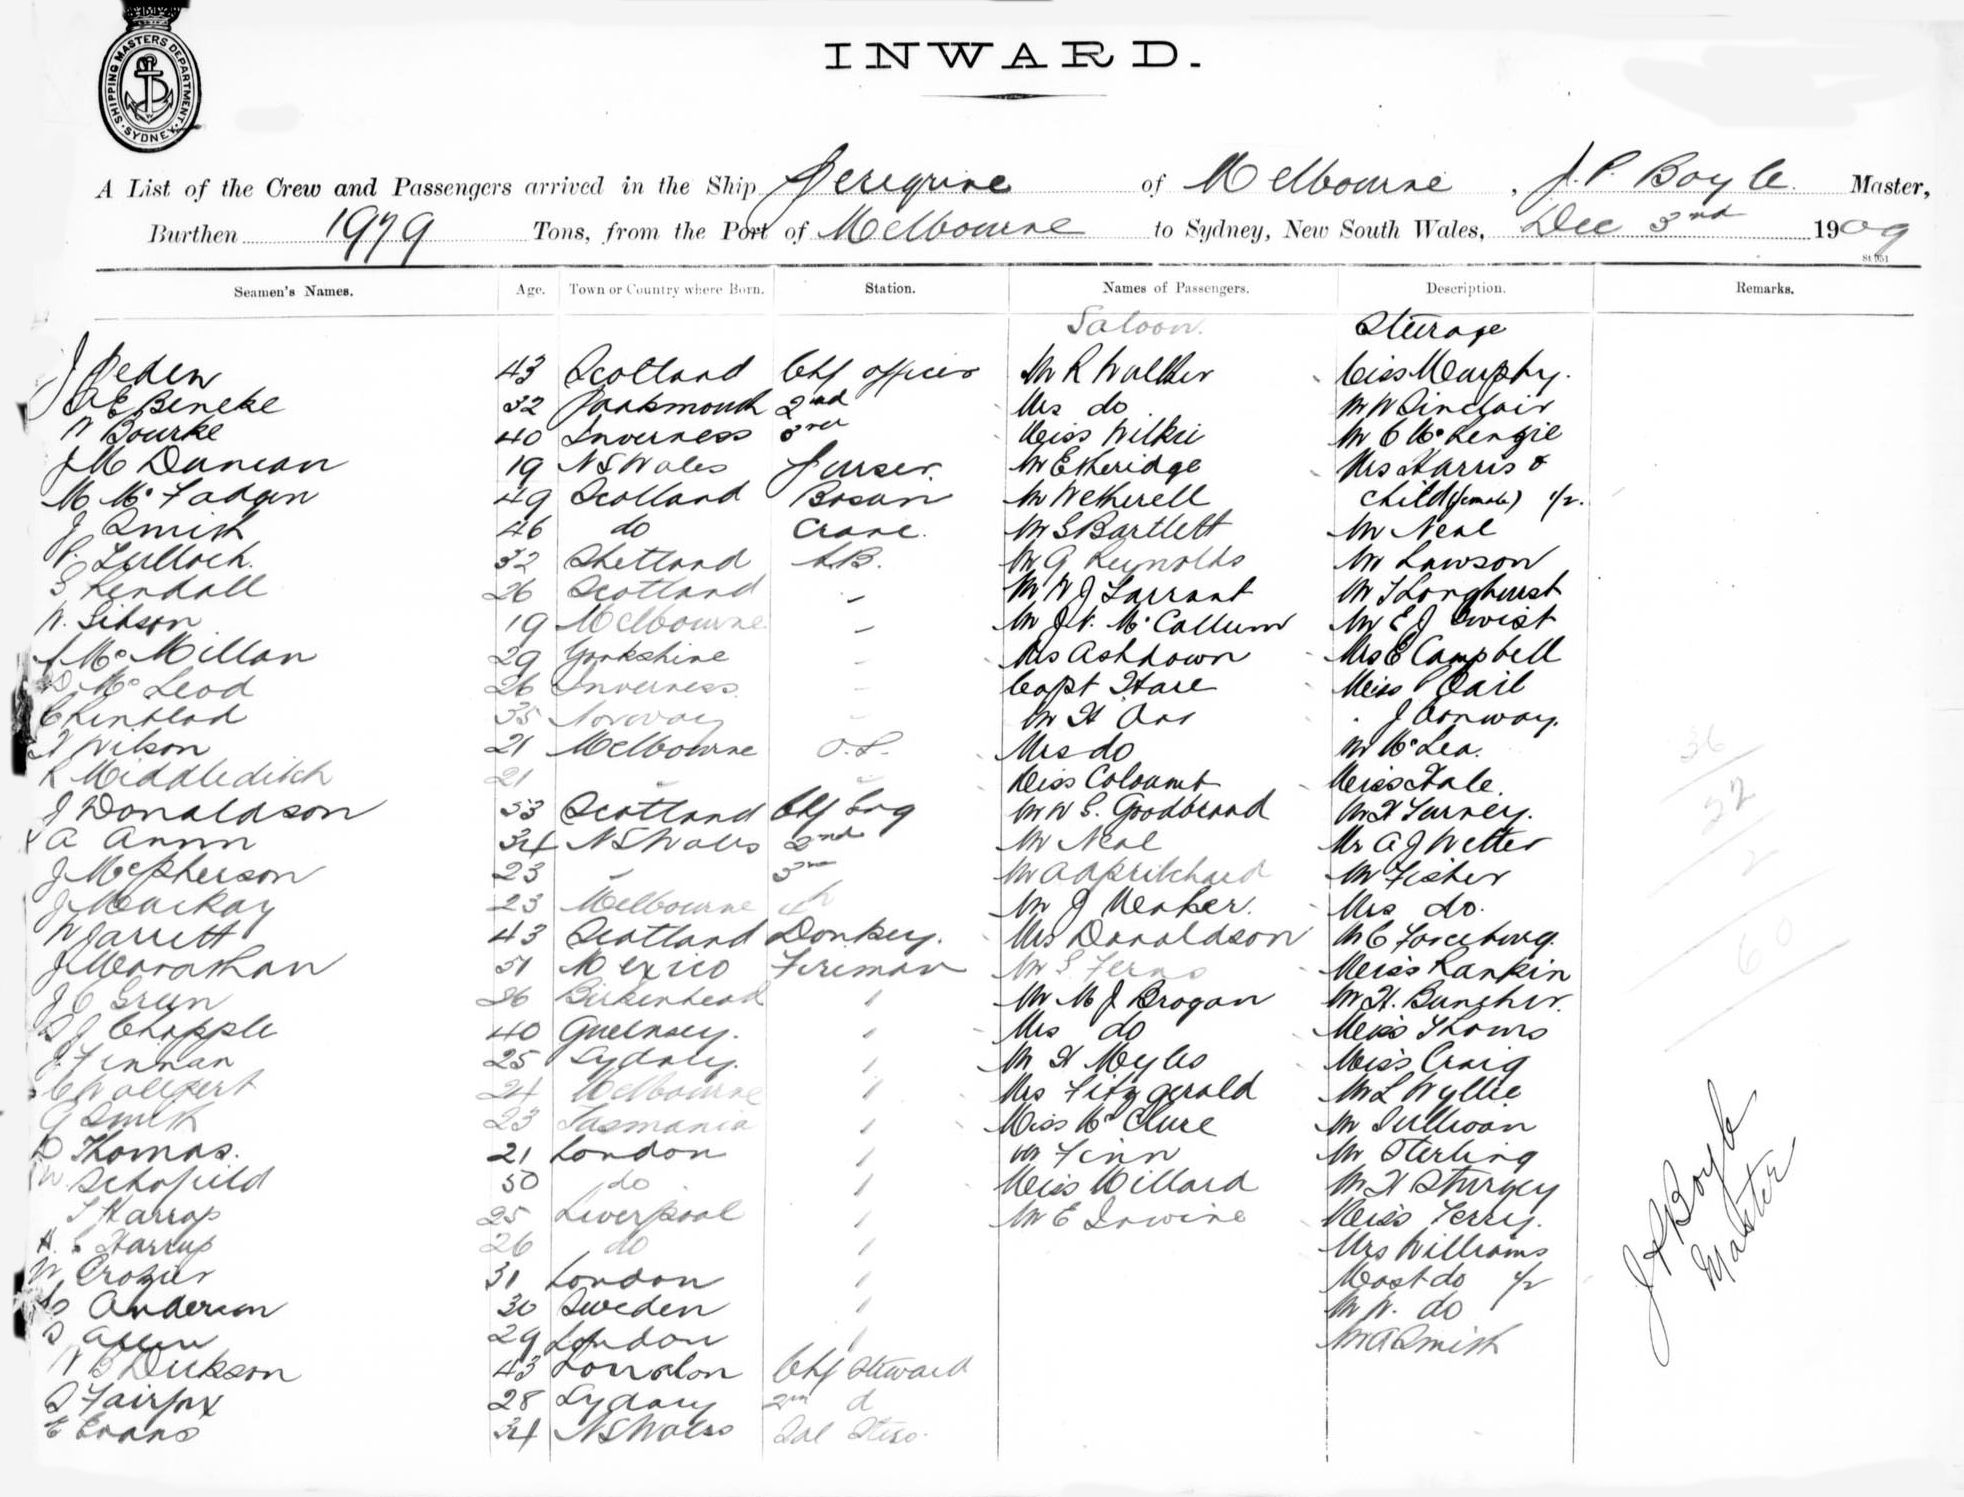 SHIPPING MASTERS DEPARTMENT. SYDNEY.
INWARD.
A List of the Crew and Passengers arrived in the Ship Peregrine of Melbourne, J. P. Boyle. Master,
Burthen 1979 Tons, from the Port of Melbourne to Sydney, New South Wales, Dec 3rd 1909
Seamen's Names. Age. Town or Country where Born. Station. Names of Passengers. Description. Remarks.
Saloon. Steerage
J Peden 43 Scotland Chf officer Mr R Walker Miss Murphy.
A E Beneke 32 Portsmouth 2nd Mrs do Mr W Sinclair
W Bourke 40 Inverness 3rd Miss Wilkie Mr C McKenzie
J M Duncan 19 N S Wales Purser. Mr Etheridge Mrs Harris &
M McFadgen 49 Scotland Bosun Mr Wetherell child (female) 1/2.
J Smith 46 do Crane. Mr S Bartlett Mr Neal
P. Tulloch. 32 Shetland A.B. Mr G Reynolds Mr Lawson
S Kendall 26 Scotland - Mr W J Tarrant Mr T Longhurst
W. Gibson 19 Melbourne - Mr J. V. McCallum Mr E J Twist
A McMillan 29 Yorkshire - Mrs Ashdown Mrs E Campbell
D McLeod 26 Inverness - Capt Hare Miss Dail
C Lindblad 35 Norway - Mr H Orr J Conway.
H Wilson 21 Melbourne O.S. Mrs do Mr McLea.
R Middleditch 21 " " Miss Coloumb Miss Hale.
J Donaldson 53 Scotland Chf Eng Mr W S. Goodbrand Mr H Turney.
A Annn 34 N S Wales 2nd Mr Neal Mr A J Wetter
J McPherson 23 " 3rd Mr A A Pritchard Mr Fisher
J MacKay 23 Melbourne 4th Mr J Meaker. Mrs do.
W Jarrett 43 Scotland Donkey. Mrs Donaldson Mr C
J Monaghan 51 Mexico Fireman Mr S Ferns Miss Rankin
J C Green 26 Birkenhead " Mr M J Brogan Mr H. Buncher.
S J Chapple 40 Guernsey. " Mrs do Miss Thoms
J. Finnan 25 Sydney. " Mr H Myles Miss Craig
C Wallpert 24 Melbourne " Mrs Fitzgerald Mr L Wyllie
G Smith 23 Tasmania " Miss McClure Mr Sullivan
D Thomas. 21 London " Mr Finn Mr Sterling
W. Schofield 50 do " Miss Millard Mr H Sturgey
T Harrap 25 Liverpool " Mr E Irwine Miss Terry.
H. E Harrup 26 do " Mrs Williams
W Crozier 31 London " Mast do 1/2
Anderson 30 Sweden " Mr W. do
S Allen 29 London " Mr A Smith
W B Dickson 43 London Chf Steward
S Fairfax 28 Sydney 2nd d
E Evans 34 N S Wales Sal Stew.
36
22
2
60
J P Boyle
Master